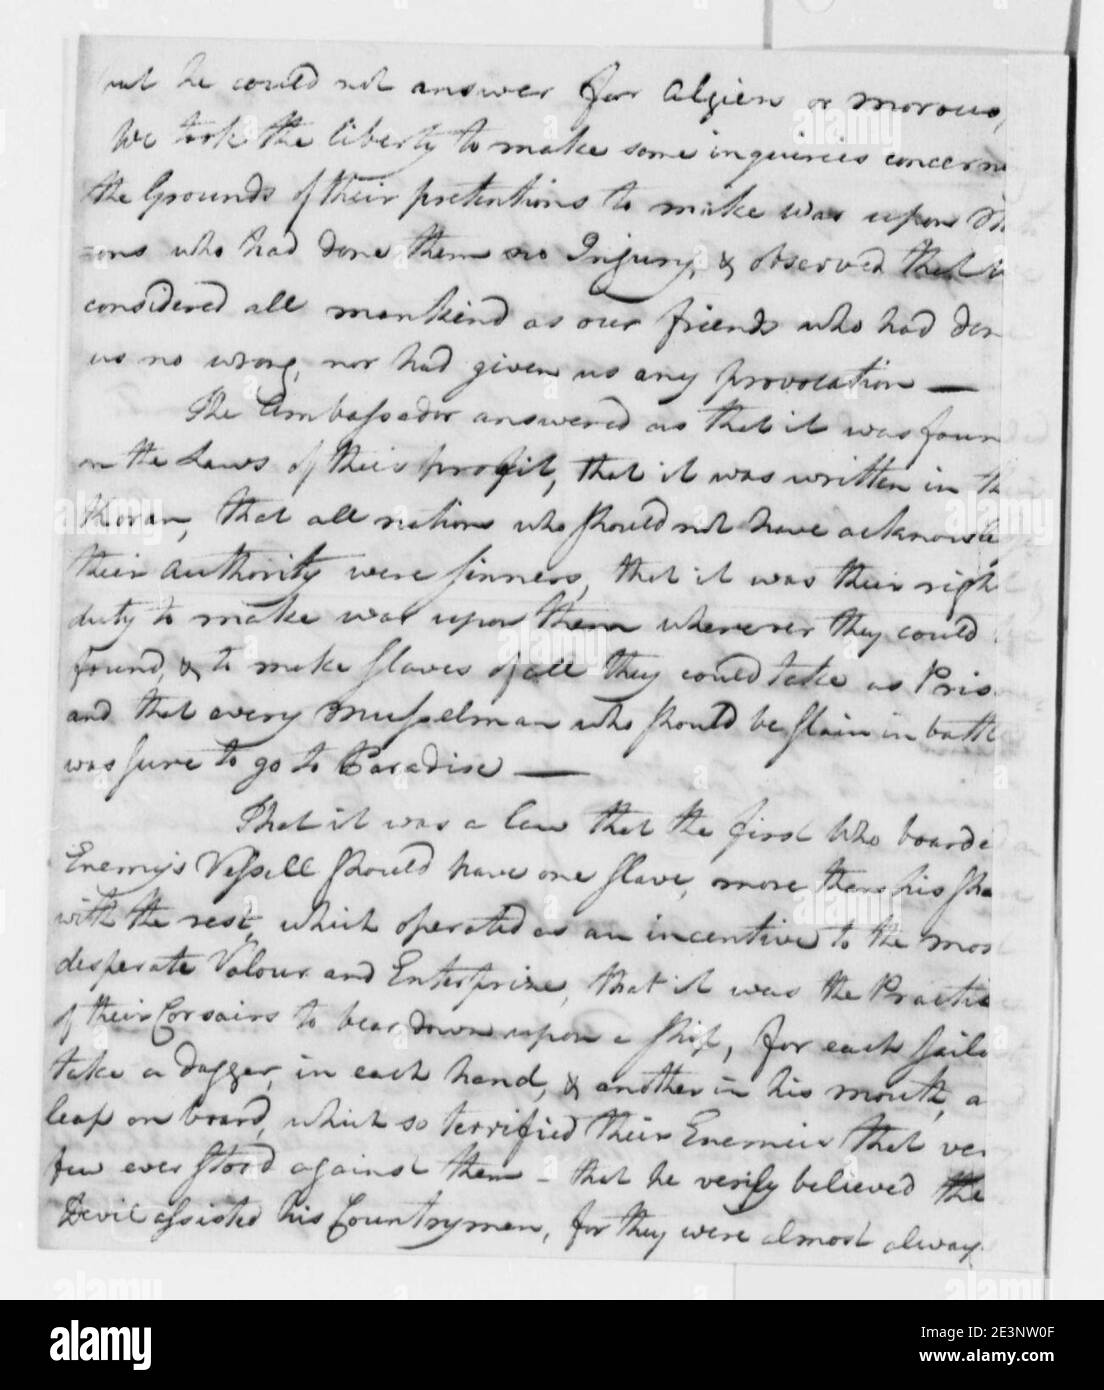 but he could not answer for Algiers or Moroco,
We took the liberty to make some inqueries concern
the Grounds of their pretentions to make war upon
=ons who had done them no Injury, & observed that
considered all mankind as our friends who had don
us no wrong, nor had given us any provocation —
The Ambassador answered us that it was foun
on the Laws of their profit, that it was written in th
Koran, that all nations who should not have acknowle
their authority were sinners, that it was their righ
duty to make war upon them wherever they could
found, & to make slaves of all they could take as Pris
and that every Musselman who should be slain in batt
was sure to go to Paradise —
That it was a law that the first who boarded
Enemy's Vessell should have one slave, more than his sha
with the rest, which operated as an incentive to the mos
desperate Valour and Enterprise, that it was the Practi
of their Corsairs to bear down upon a ship, for each sail
take a dagger, in each hand, & another in his mouth, a
leap on board, which so terrified their Enemies that ver
few ever stood against them — that he verily believed the
Devil assisted his Countrymen, for they were almost alway
alamy
Image ID: 2E3NW0F
www.alamy.com